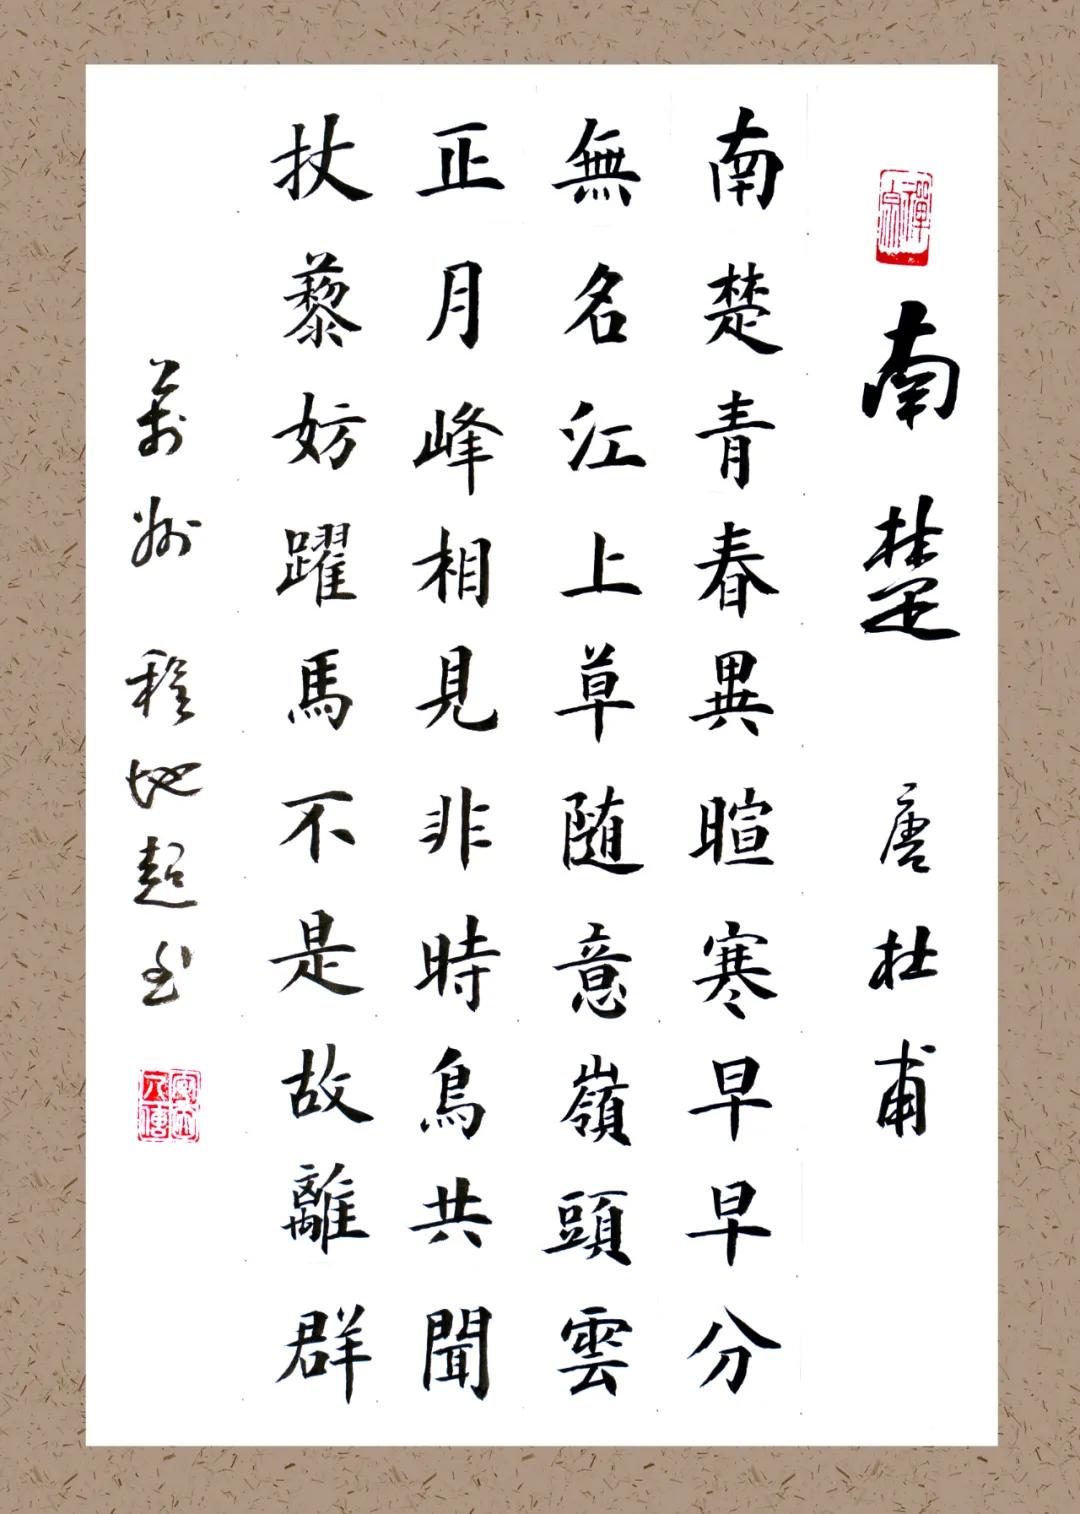 南楚 唐 杜甫
南楚青春異暄寒早早分
無名江上草随意嶺頭雲
正月峰相見非時鳥共聞
扙藜妨躍馬不是故離群
萬州 地超书